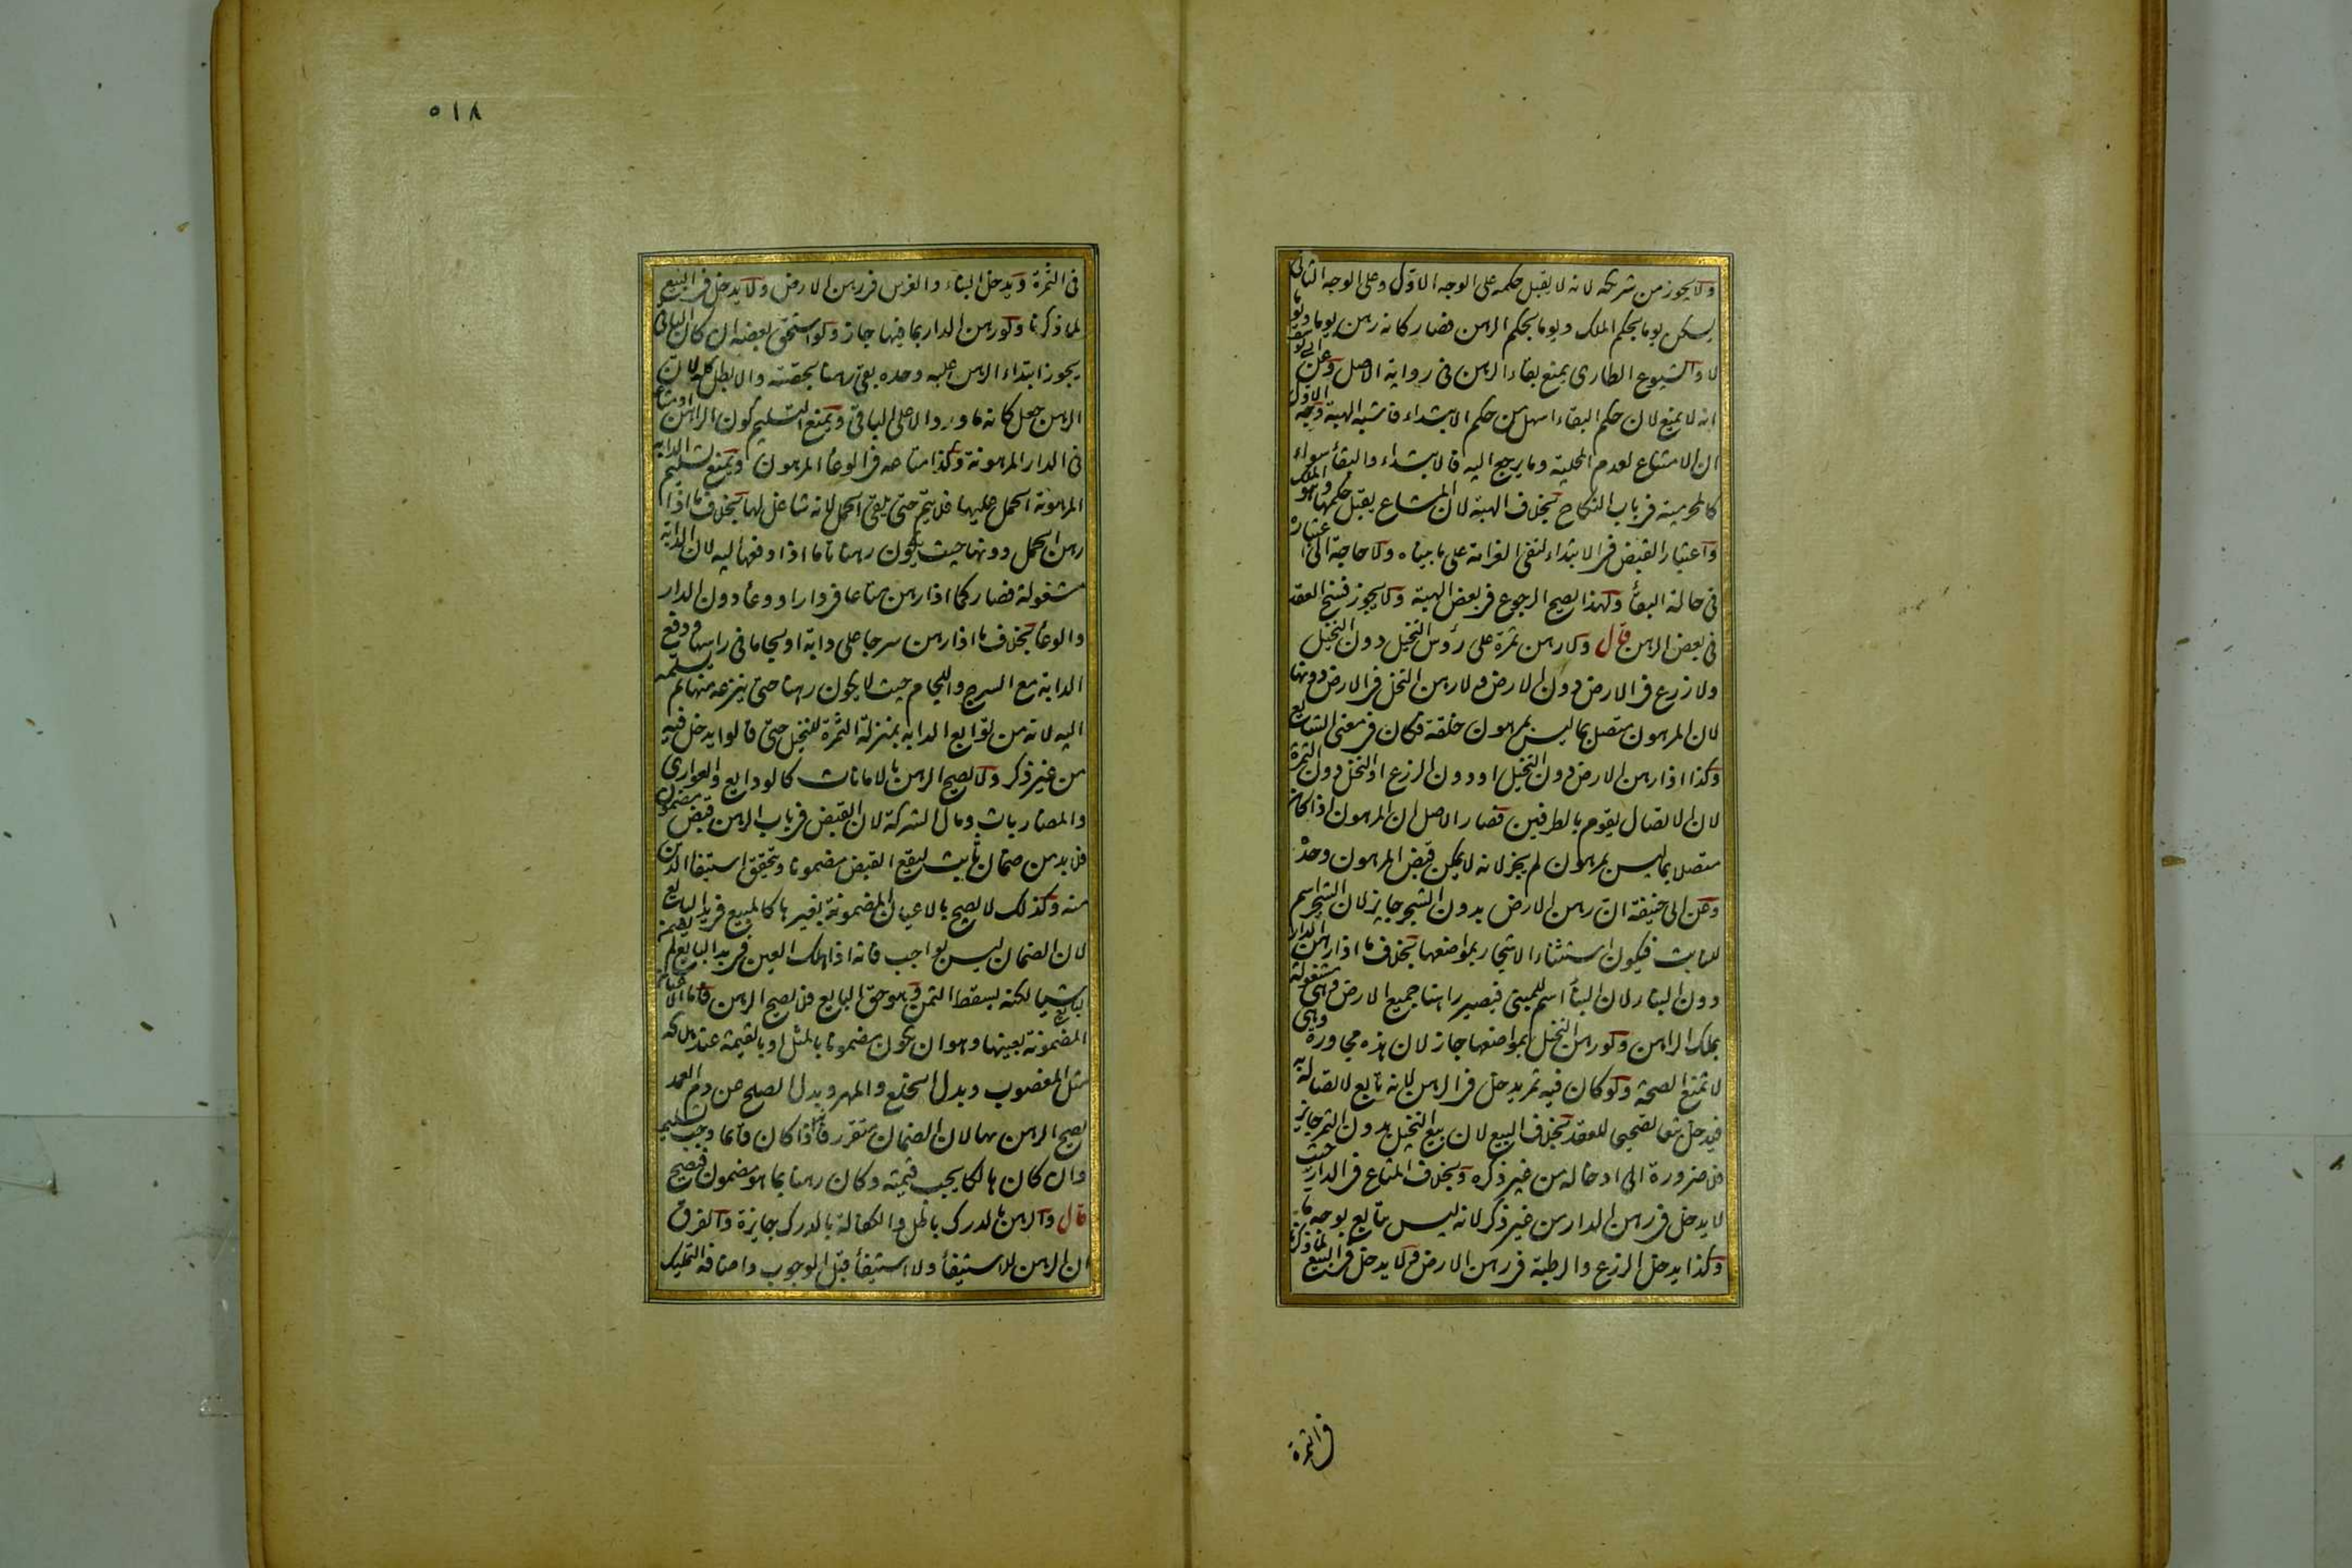 ولا يجوز من شريكه لانه لا يقبل حكمه على الوجه الاول وعلى الوجه الثاني
يسكن يوما بحكم الملك ويوما بحكم الرهن فصار كانه رهن يوما ويوما
لا والشيوع الطارى يمنع بقاء الرهن فى رواية الاصل وعن ابى يوسف
انه لا يمنع لان حكم البقاء اسهل من حكم الابتداء فاشبه الهبة وجه الاول
ان الامتناع لعدم المحلية وما يرجع اليه فالابتداء والبقأ سواء
كالمحرمية فى باب النكاح بخلاف الهبة لان المشاع يقبل حكمها وهو الملك
واعتبار القبض فى الابتداء لنفى الغرامة على ما بيناه ولا حاجة الى اعتباره
فى حالة البقأ ولهذا يصح الرجوع فى بعض الهبة ولا يجوز فسخ العقد
فى بعض الرهن قال ولا رهن ثمرة على رؤس النخيل دون النخيل
ولا زرع فى الارض دون الارض ولا رهن النخل فى الارض دونها
لان المرهون متصل بما ليس بمرهون خلقة فكان فى معنى الشايع
وكذا اذا رهن الارض دون النخيل او دون الزرع او النخل دون الثمرة
لان الاتصال يقوم بالطرفين فصار الاصل ان المرهون اذا كان
متصلا بما ليس بمرهون لم يجز لانه لا يمكن قبض المرهون وحده
وعن ابى حنيفة ان رهن الارض بدون الشجر جايز لان الشجر اسم
للنابت فيكون استثناء الاشجار بمواضعها بخلاف ما اذا رهن الدار
دون البناء لان البنأ اسم للمبنى فيصير راهنا جميع الارض وهى مشغولة
بملك الراهن ولو رهن النخل بمواضعها جاز لان هذه مجاورة وهى
لا تمنع الصحة ولو كان فيه ثمر يدخل فى الرهن لانه تابع لاتصاله به
فيدخل تبعا تصحيحا للعقد بخلاف البيع لان بيع النخيل بدون الثمر جايز
فلا ضرورة الى ادخاله من غير ذكره وبخلاف المتاع فى الدار حيث
لا يدخل فى رهن الدار من غير ذكر لانه ليس بتابع بوجه ما
وكذا يدخل الزرع والرطبة فى رهن الارض ولا يدخل فى البيع لما ذكرنا
فى الثمرة
٥١٨
فى الثمرة ويدخل البناء والغرس فى رهن الارض ولا يدخل فى البيع
لما ذكرنا ولو رهن الدار بما فيها جاز ولو استحق بعضه ان كان الباقى
يجوز ابتداء الرهن عليه وحده بقى رهنا بحصته والا بطل كله لان
الرهن جعل كانه ما ورد الا على الباقى ويمنع التسليم كون الراهن او متاعه
فى الدار المرهونة وكذا متاعه فى الوعأ المرهون ويمنع تسليم الدابة
المرهونة الحمل عليها فلا يتم حتى يلقى الحمل لانه شاغل لها بخلاف ما اذا
رهن الحمل دونها حيث يكون رهنا تاما اذا دفعها اليه لان الدابة
مشغولة فصار كما اذا رهن متاعا فى دار او وعأ دون الدار
والوعأ بخلاف ما اذا رهن سرجا على دابة او لجاما فى راسها ودفع
الدابة مع السرج واللجام حيث لا يكون رهنا حتى ينزعه منها ثم يسلمه
اليه لانه من توابع الدابة بمنزلة الثمرة للنخيل حتى قالوا يدخل فيه
من غير ذكر ولا يصح الرهن بالامانات كالودايع والعوارى
والمضاربات ومال الشركة لان القبض فى باب الرهن قبض مضمون
فلا بد من ضمان ثابت ليقع القبض مضمونا ويتحقق استيفا الدين
منه وكذلك لا يصح بالاعيان المضمونة بغيرها كالمبيع فى يد البايع
لان الضمان ليس بواجب فانه اذا هلك العين فى يد البايع لم يضمن
البايع شيا لكنه يسقط الثمن وهو حق البايع فلا يصح الرهن فاما الاعيان
المضمونة بعينها وهو ان يكون مضمونا بالمثل او بالقيمة عند هلاكه
مثل المغصوب وبدل الخلع والمهر وبدل الصلح عن دم العمد
يصح الرهن بها لان الضمان متقرر فانه اذا كان قائما وجب تسليمه
وان كان هالكا يجب قيمته وكان رهنا بما هو مضمون فيصح
قال والرهن بالدرك باطل والكفالة بالدرك جايزة والفرق
ان الرهن للاستيفأ ولا استيفأ قبل الوجوب واضافة التمليك